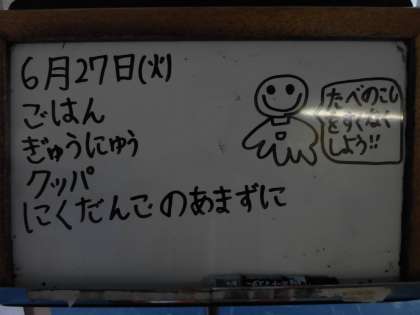 6月27日(火)
ごはん
ぎゅうにゅう
クッパ
にくだんごのあまずに
たべのこし
をすくなく
しよう!!